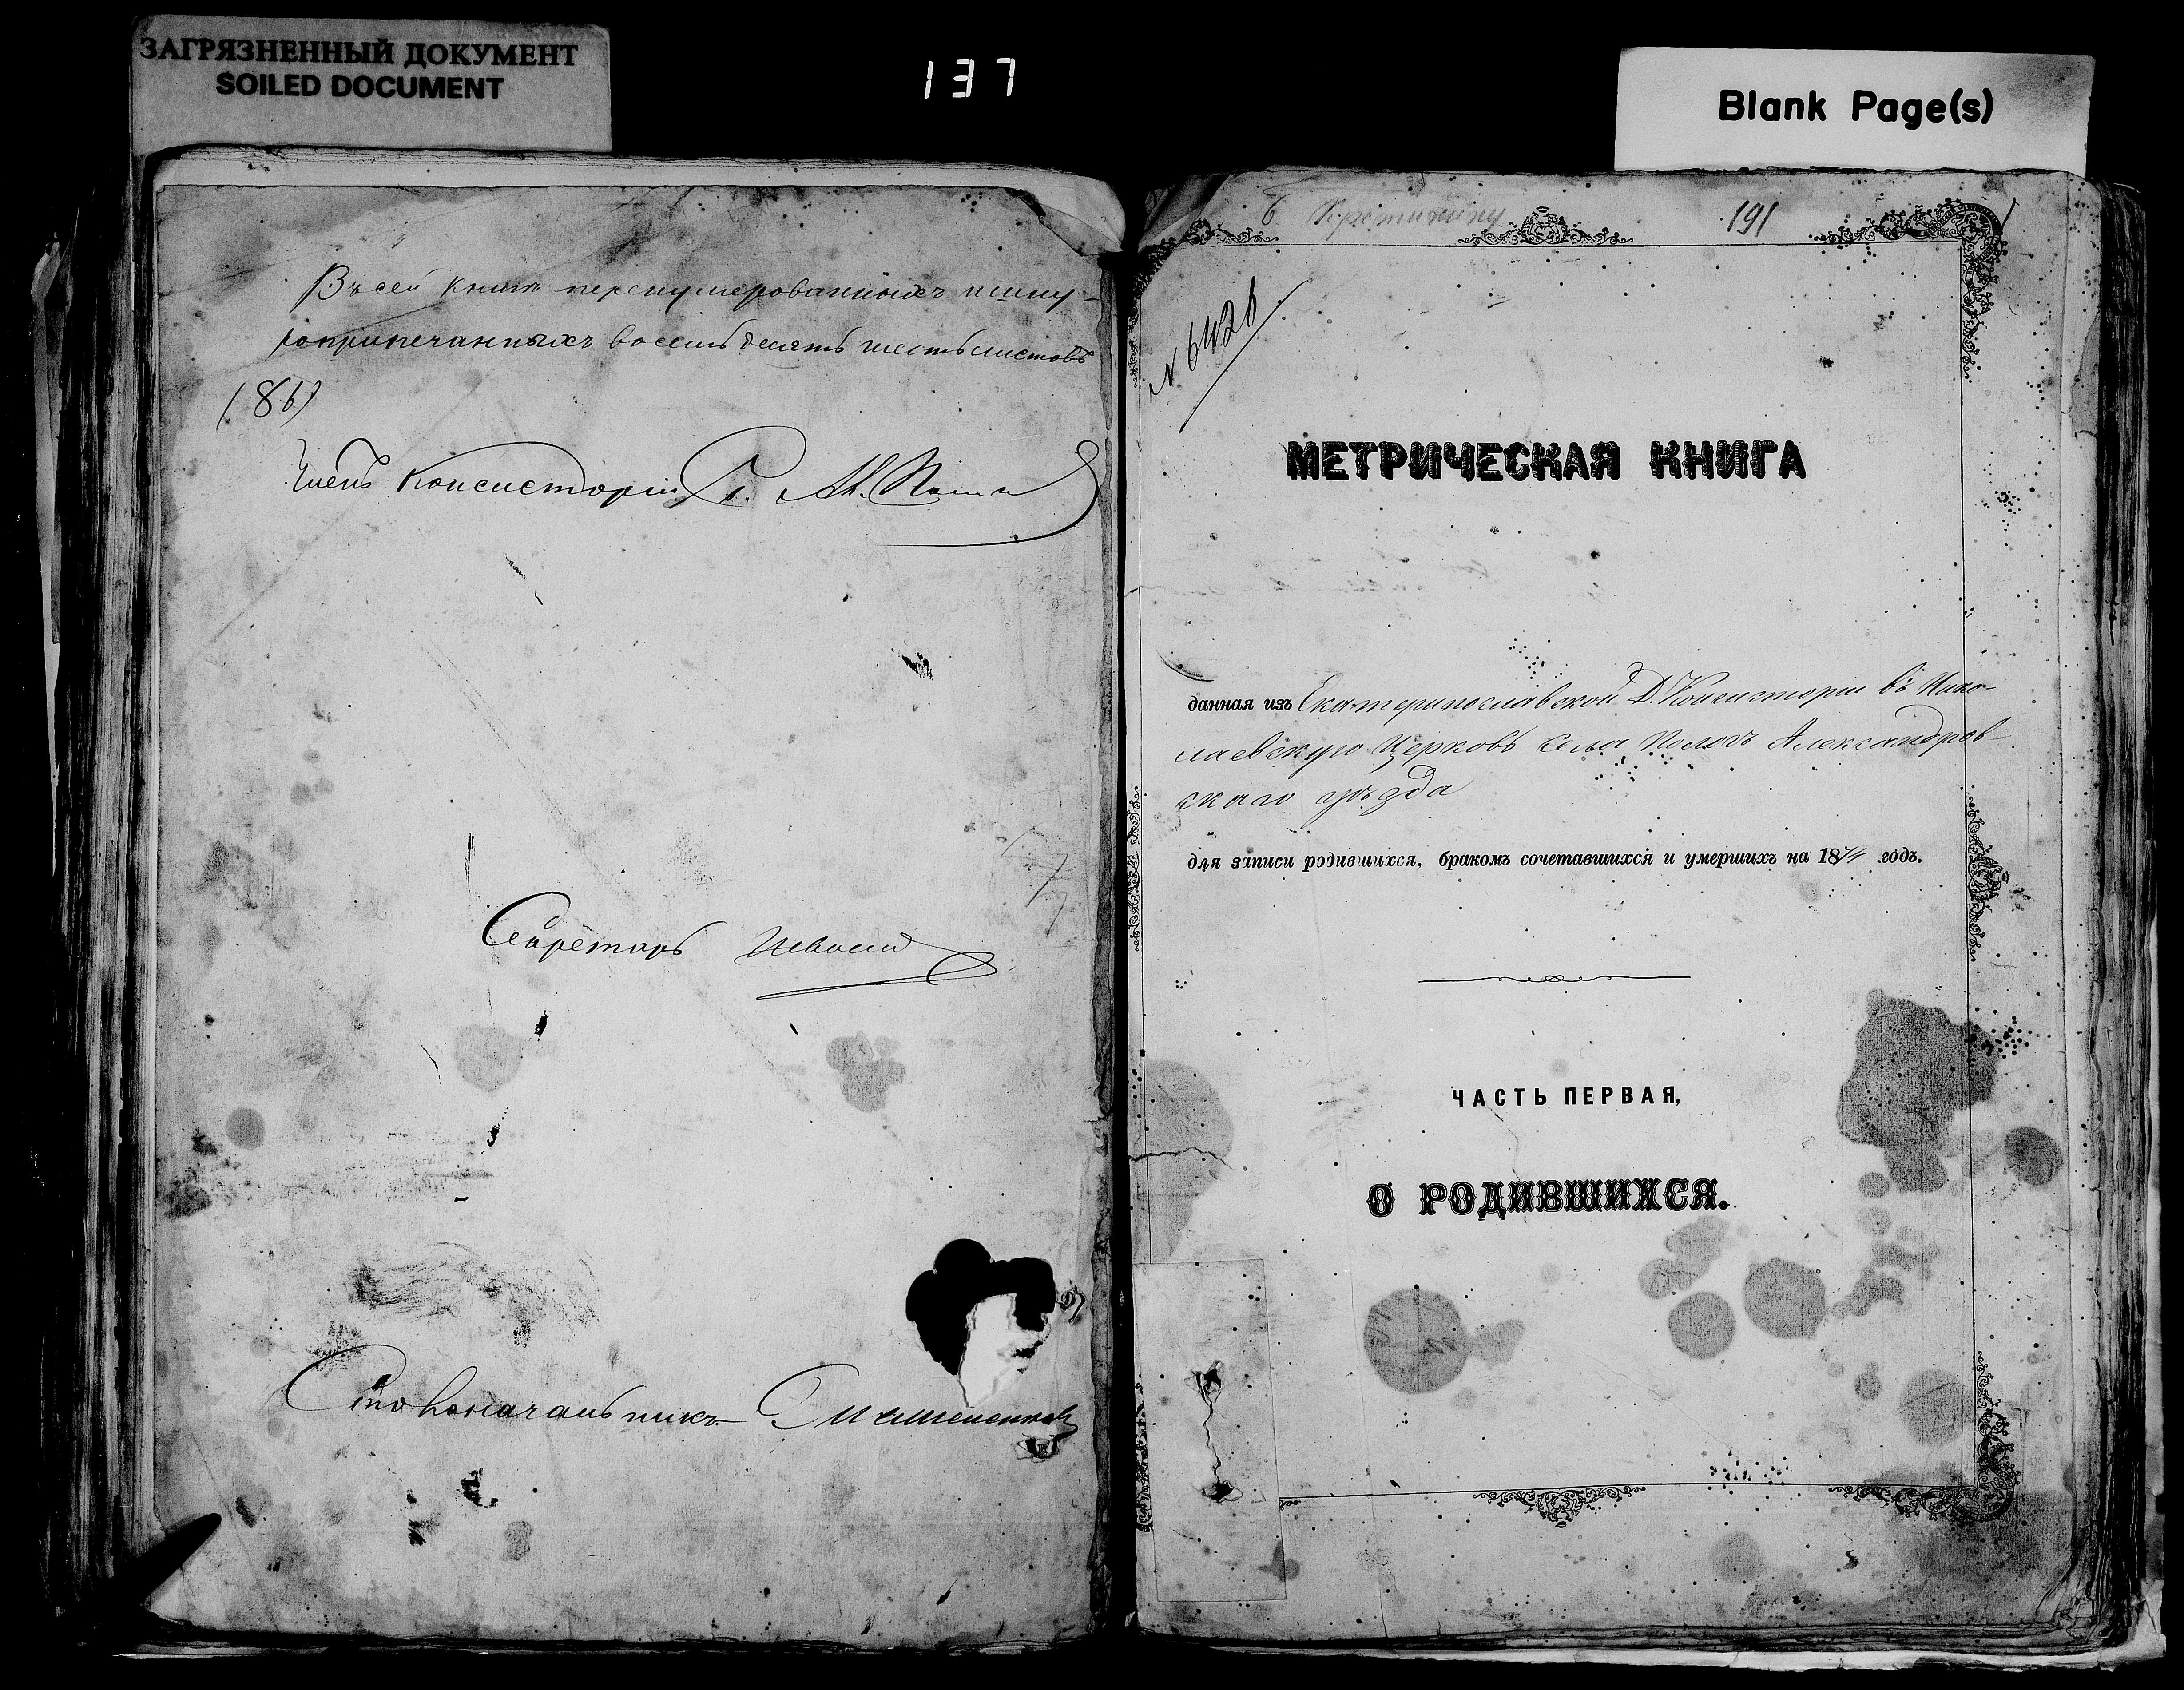 ЗАГРЯЗНЕННЫЙ ДОКУМЕНТ
SOILED DOCUMENT
137
Blank Page(s)
Въ сей книгѣ перенумерованныхъ и шну-
роприпечатанныхъ восемьдесятъ шесть листовъ
(86)
Членъ Консисторіи
Секретарь
Столоначальникъ
191
№ 6428
МЕТРИЧЕСКАЯ КНИГА
данная изъ Екатеринославской Д. Консисторіи въ Нико-
лаевскую Церковь села Пологъ Александров-
скаго уѣзда
для записи родившихся, бракомъ сочетавшихся и умершихъ на 1874 годъ.
ЧАСТЬ ПЕРВАЯ,
О РОДИВШИХСЯ.